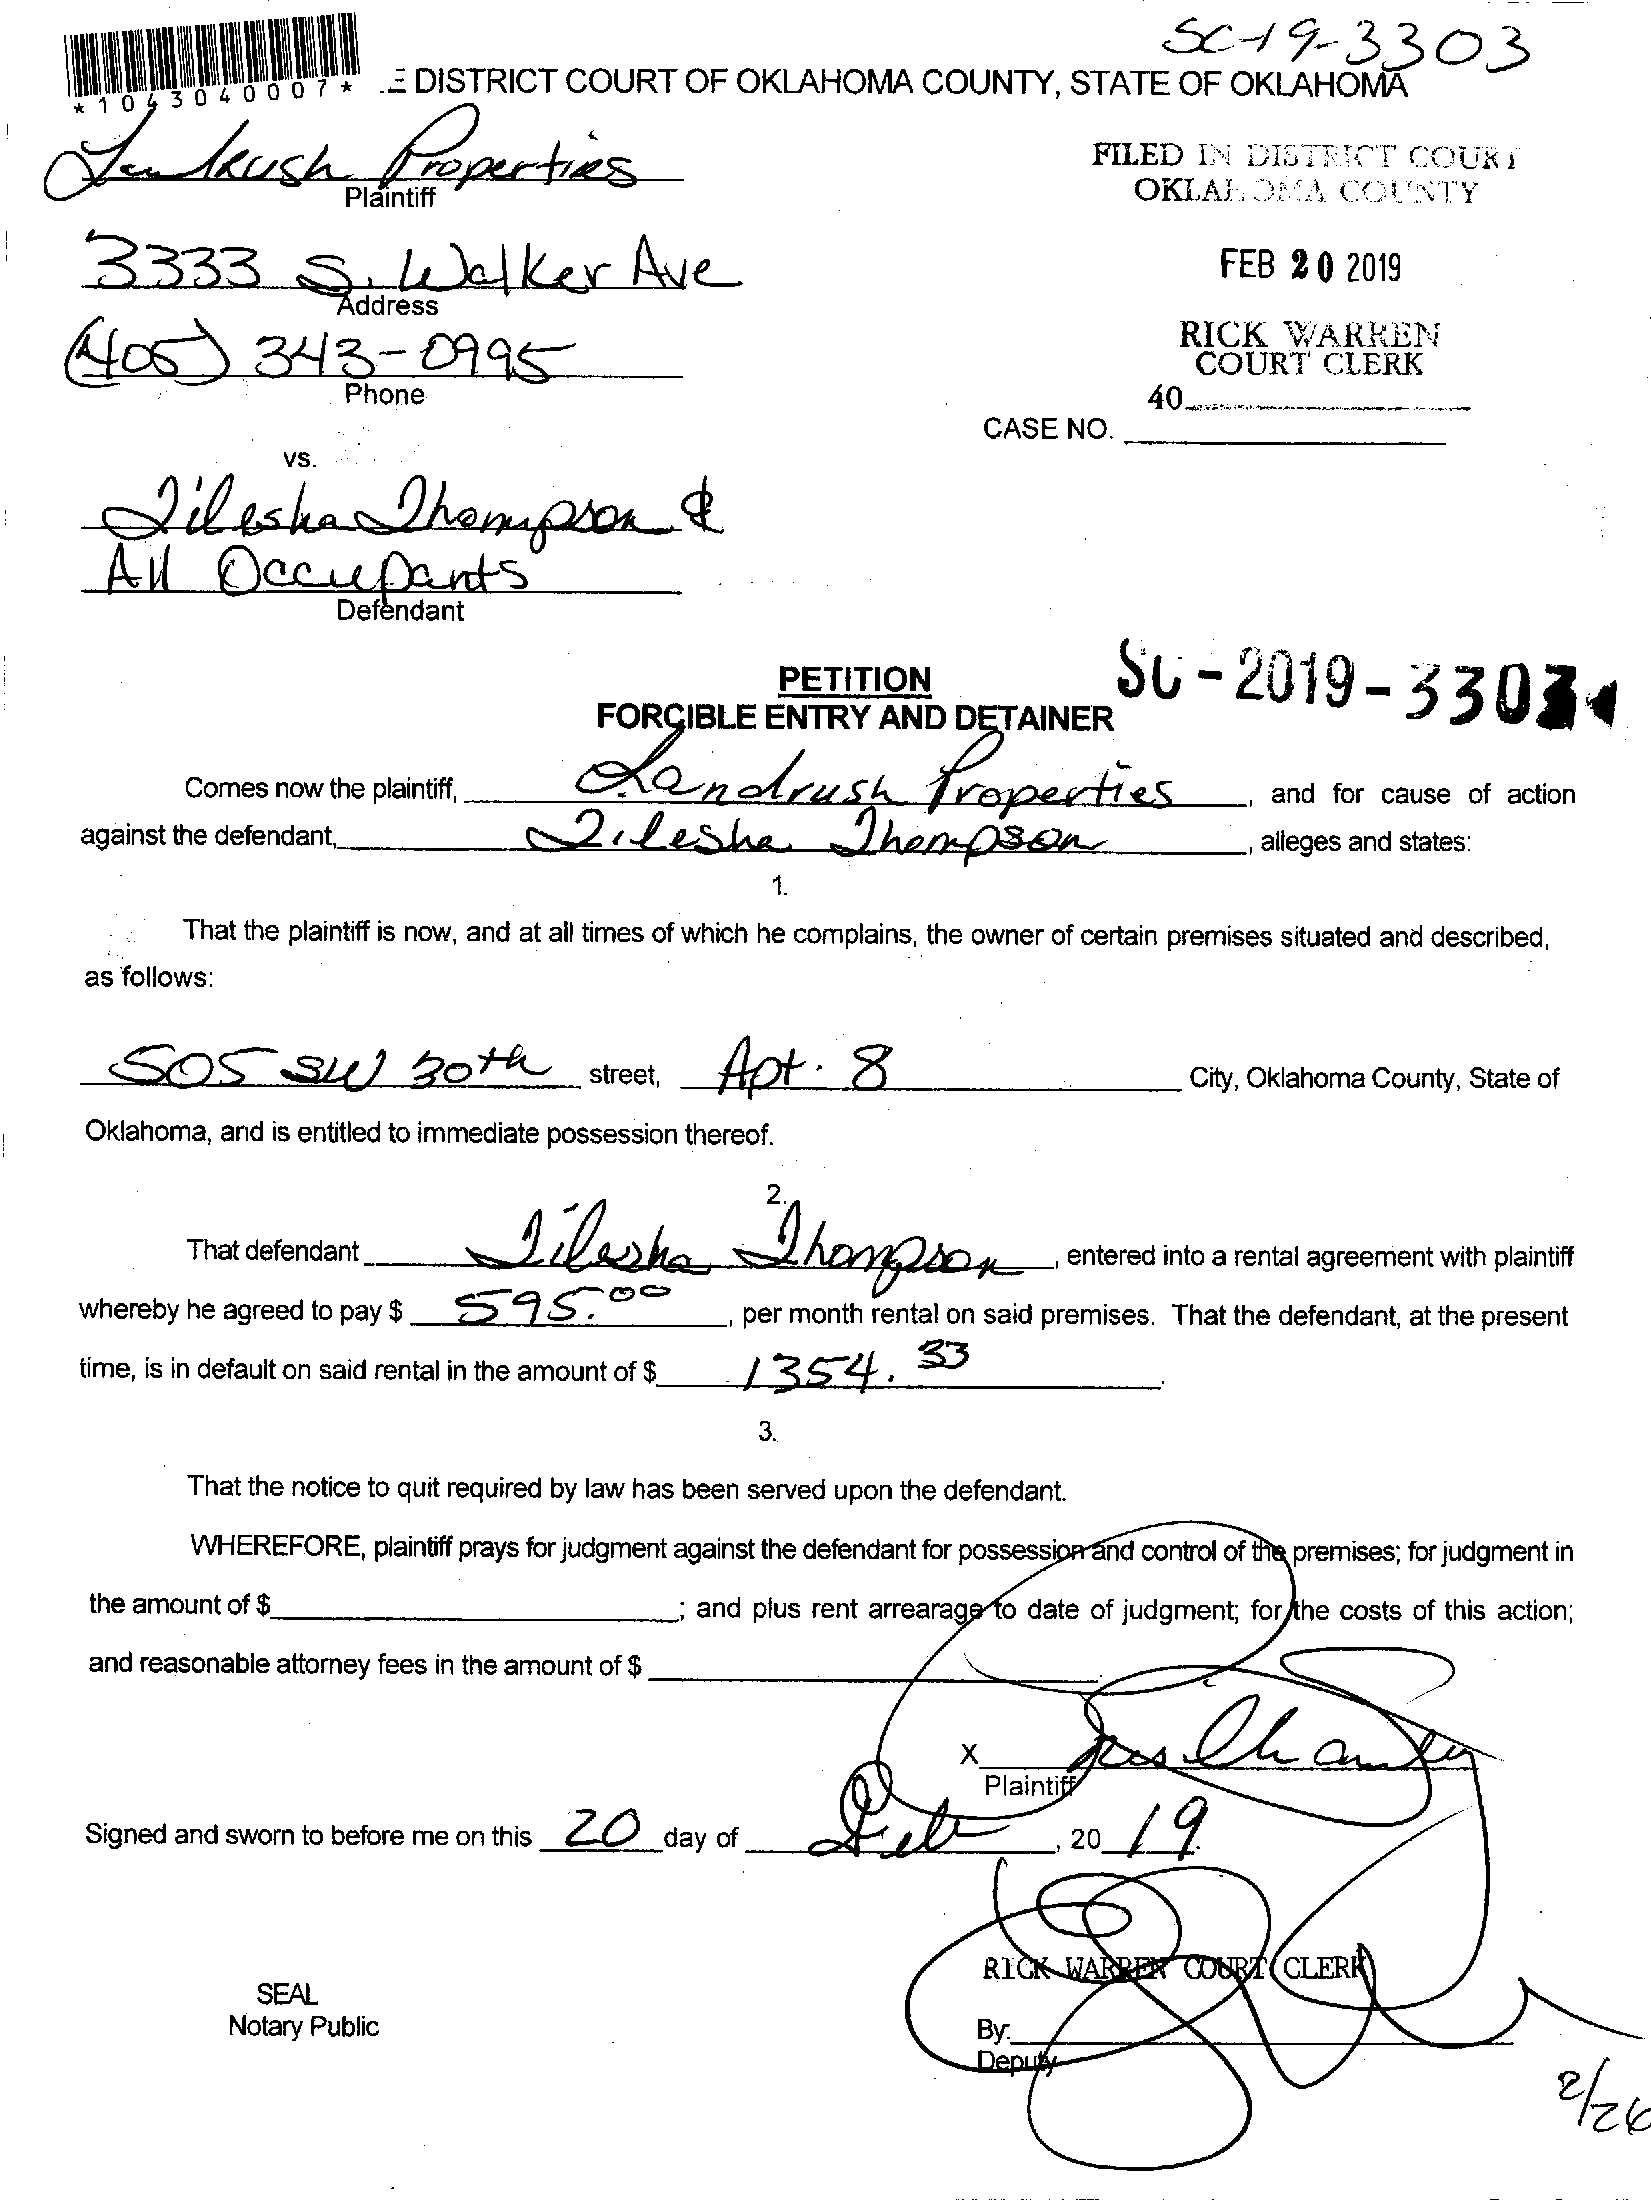 SC-19-3303
*1043040007*
E DISTRICT COURT OF OKLAHOMA COUNTY, STATE OF OKLAHOMA
Landrush Properties
Plaintiff
FILED IN DISTRICT COURT
OKLAHOMA COUNTY
3333 S. Walker Ave
Address
FEB 20 2019
(405) 343-0995
Phone
RICK WARREN
COURT CLERK
40
CASE NO.
vs.
Tilesha Thompson &
All Occupants
Defendant
PETITION
SC-2019-3303
FORCIBLE ENTRY AND DETAINER
Comes now the plaintiff, Landrush Properties, and for cause of action
against the defendant, Tilesha Thompson, alleges and states:
1.
That the plaintiff is now, and at all times of which he complains, the owner of certain premises situated and described,
as follows:
505 SW 30th street, Apt. 8 City, Oklahoma County, State of
Oklahoma, and is entitled to immediate possession thereof.
2.
That defendant Tilesha Thompson, entered into a rental agreement with plaintiff
whereby he agreed to pay $ 595.00, per month rental on said premises. That the defendant, at the present
time, is in default on said rental in the amount of $ 1354.33.
3.
That the notice to quit required by law has been served upon the defendant.
WHEREFORE, plaintiff prays for judgment against the defendant for possession and control of the premises; for judgment in
the amount of $ ; and plus rent arrearage to date of judgment; for the costs of this action;
and reasonable attorney fees in the amount of $
X
Plaintiff
Signed and sworn to before me on this 20 day of Feb, 20 19.
RICK WARREN COURT CLERK
SEAL
Notary Public
By:
Deputy
2/26